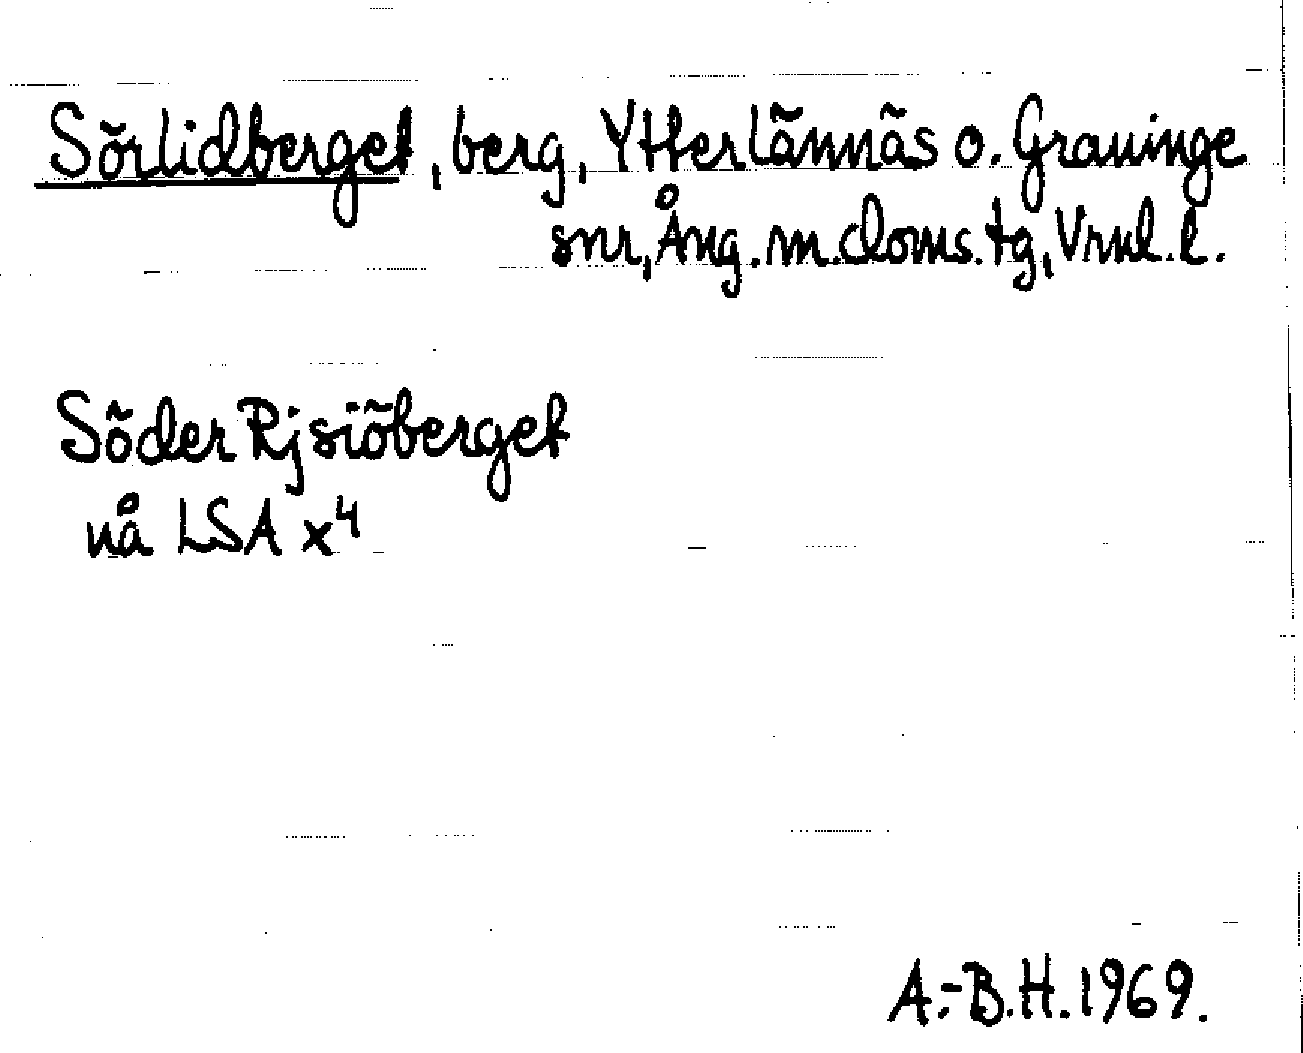 Sörlidberget, berg, Ytterlännäs o. Graninge
snr, Ång. m. doms. tg, Vrnl. l.
Söder Rjsiöberget
nå LSA x⁴
A.-B.H. 1969.